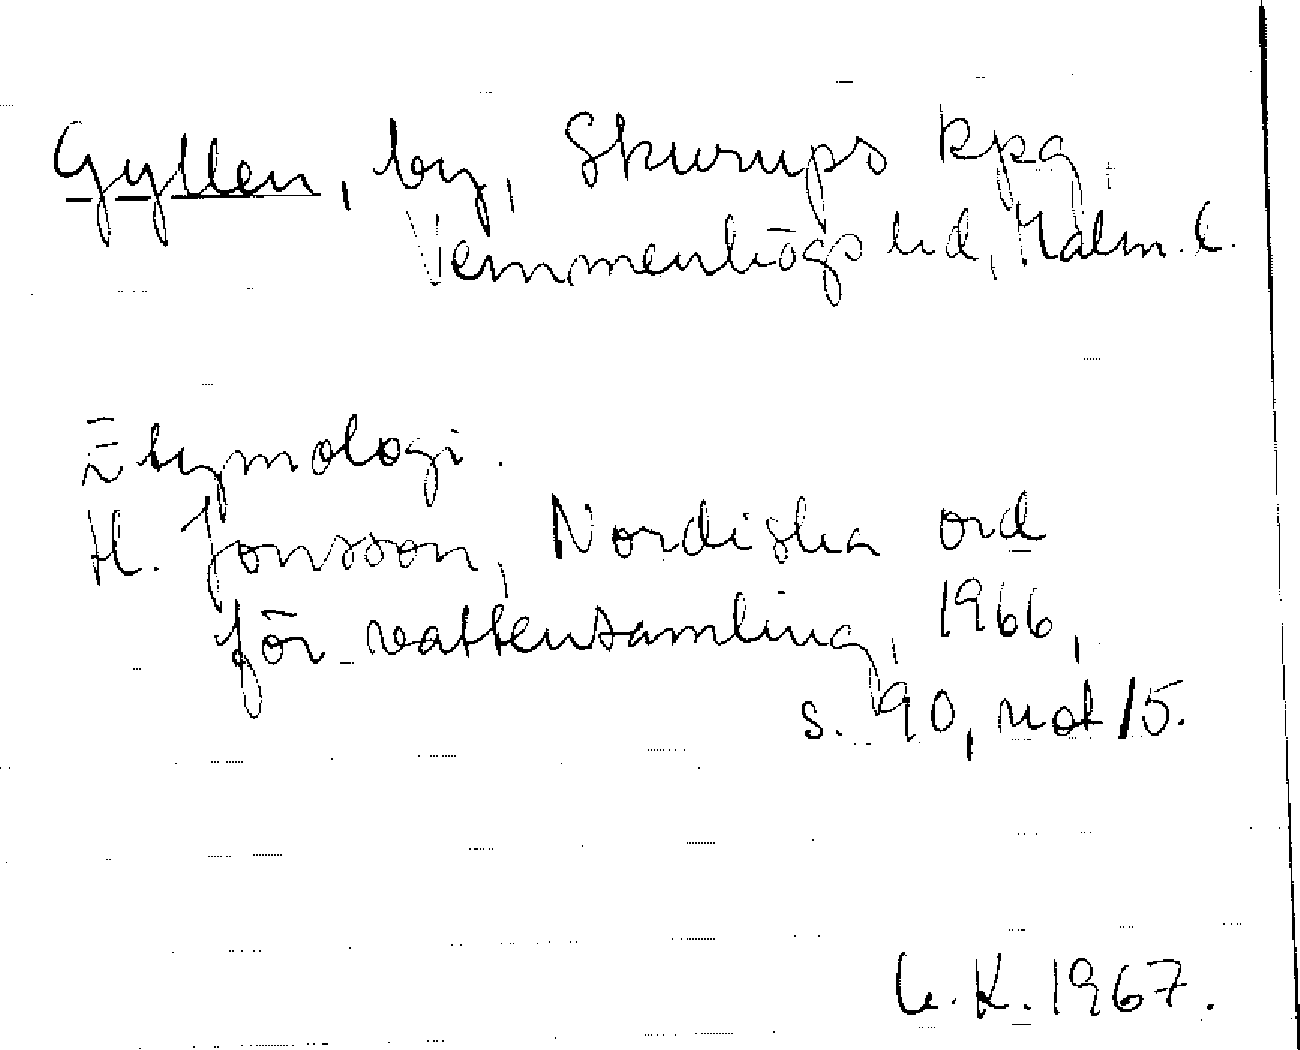 Gyllen, by, Skurups kpg,
Vemmenhögs hd, Malm. l.
Etymologi.
H. Jonsson, Nordiska ord
för vattensamling, 1966,
s. 90, not 15.
K. 1967.